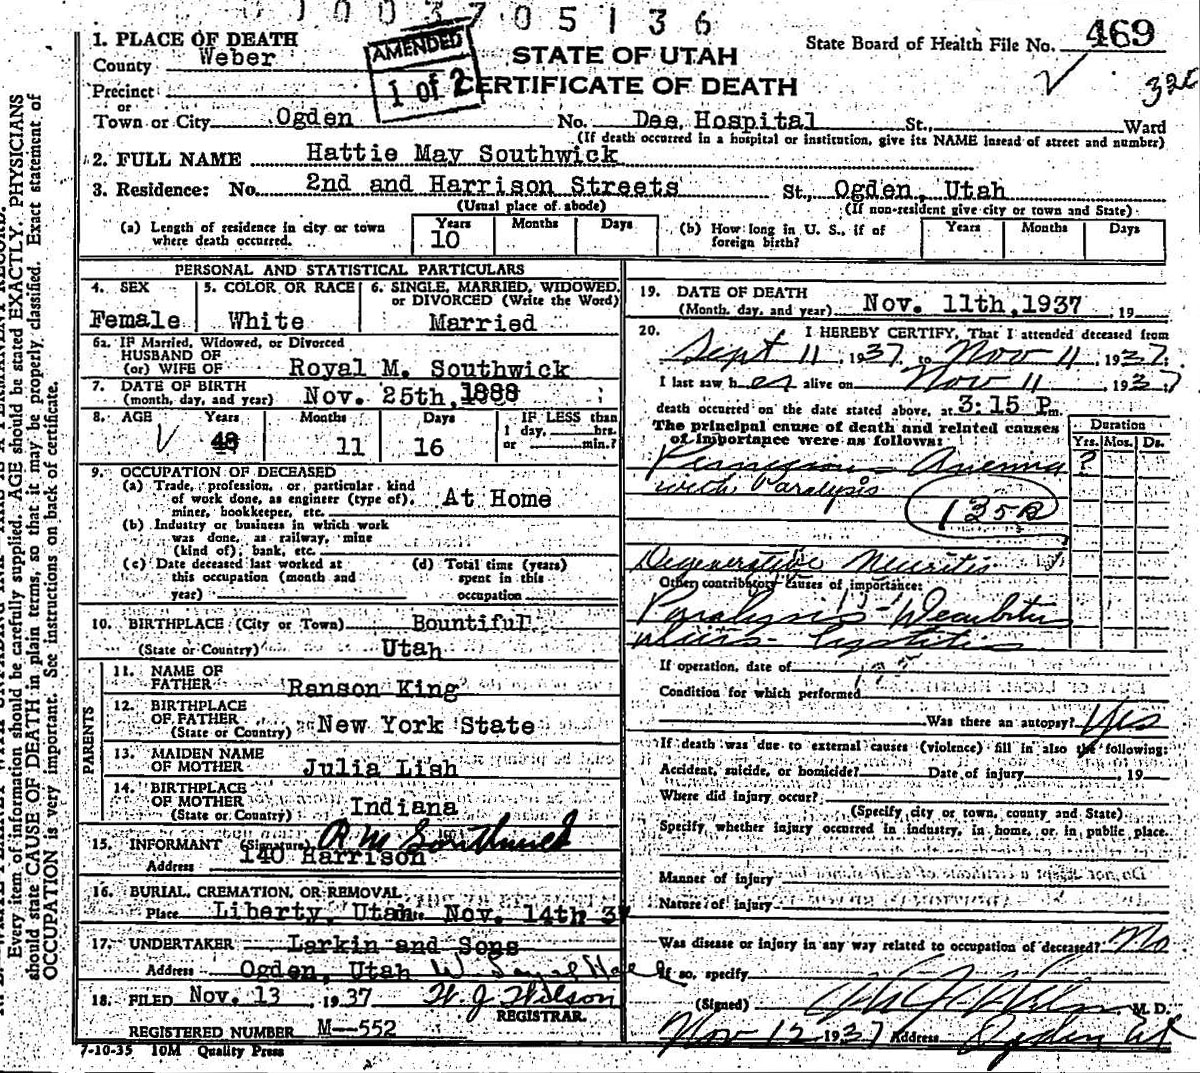 10037 05136
1. PLACE OF DEATH
County Weber
AMENDED
1 of 2
STATE OF UTAH
CERTIFICATE OF DEATH
State Board of Health File No. 469
Precinct
or
Town or City Ogden No. Dee Hospital St., Ward
(If death occurred in a hospital or institution, give its NAME insead of street and number)
2. FULL NAME Hattie May Southwick
3. Residence: No. 2nd and Harrison Streets St., Ogden, Utah
(Usual place of abode) (If non-resident give city or town and State)
(a) Length of residence in city or town where death occurred. Years 10 Months Days
(b) How long in U. S., if of foreign birth? Years Months Days
PERSONAL AND STATISTICAL PARTICULARS
4. SEX Female
5. COLOR OR RACE White
6. SINGLE, MARRIED, WIDOWED, or DIVORCED (Write the Word) Married
6a. IF Married, Widowed, or Divorced
HUSBAND OF
(or) WIFE OF Royal M. Southwick
7. DATE OF BIRTH
(month, day, and year) Nov. 25th, 1888
8. AGE Years 48 Months 11 Days 16 IF LESS than
1 day, hrs.
or min.?
9. OCCUPATION OF DECEASED
(a) Trade, profession, or particular kind
of work done, as engineer (type of), At Home
miner, bookkeeper, etc.
(b) Industry or business in which work
was done, as railway, mine
(kind of), bank, etc.
(c) Date deceased last worked at
this occupation (month and
year)
(d) Total time (years)
spent in this
occupation
10. BIRTHPLACE (City or Town) Bountiful
(State or Country) Utah
PARENTS
11. NAME OF
FATHER Ranson King
12. BIRTHPLACE
OF FATHER New York State
(State or Country)
13. MAIDEN NAME
OF MOTHER Julia Lish
14. BIRTHPLACE
OF MOTHER Indiana
(State or Country)
15. INFORMANT (Signature) R M Southwick
Address 140 Harrison
16. BURIAL, CREMATION, OR REMOVAL
Place Liberty, Utah Date Nov. 14th 37
17. UNDERTAKER Larkin and Sons
Address Ogden, Utah
18. FILED Nov. 13, 1937 W. J. Wilson
REGISTRAR.
REGISTERED NUMBER M--552
7-10-35 10M Quality Press
19. DATE OF DEATH
(Month, day, and year) Nov. 11th, 1937, 19
20. I HEREBY CERTIFY, That I attended deceased from
Sept 11, 1937, to Nov 11, 1937.
I last saw her alive on Nov 11, 1937
death occurred on the date stated above, at 3:15 P m.
The principal cause of death and related causes
of importance were as follows:
Duration
Yrs. Mos. Ds.
Pernicious Anemia ?
with Paralysis
Degenerative Neuritis
Other contributory causes of importance:
Paralysis - Decubitus
ulcers - Cystitis
If operation, date of
Condition for which performed
Was there an autopsy? Yes
If death was due to external causes (violence) fill in also the following:
Accident, suicide, or homicide? Date of injury , 19
Where did injury occur?
(Specify city or town, county and State)
Specify whether injury occurred in industry, in home, or in public place.
Manner of injury
Nature of injury
Was disease or injury in any way related to occupation of deceased? No
If so, specify
(Signed) M. D.
Nov 12 1937 Address Ogden Ut
Every item of information should be carefully supplied. AGE should be stated EXACTLY. PHYSICIANS
should state CAUSE OF DEATH in plain terms, so that it may be properly classified. Exact statement of
OCCUPATION is very important. See instructions on back of certificate.